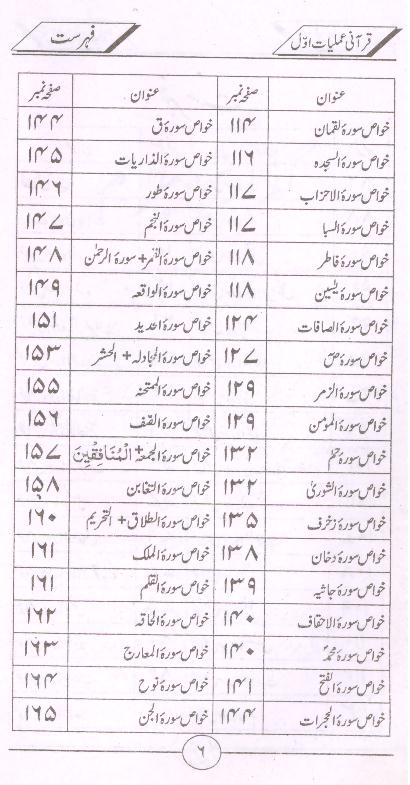 قرآنی عملیات اوّل فہرست
عنوان صفحہ نمبر عنوان صفحہ نمبر
خواص سورۂ لقمان ۱۱۴ خواص سورۂ ق ۱۴۴
خواص سورۂ السجدہ ۱۱۶ خواص سورۂ الذاریات ۱۴۵
خواص سورۂ الاحزاب ۱۱۷ خواص سورۂ طور ۱۴۶
خواص سورۂ السبا ۱۱۷ خواص سورۂ النجم ۱۴۷
خواص سورۂ فاطر ۱۱۸ خواص سورۂ القمر + سورۂ الرحمٰن ۱۴۸
خواص سورۂ یٰسین ۱۱۸ خواص سورۂ الواقعہ ۱۴۹
خواص سورۂ الصافات ۱۲۴ خواص سورۂ الحدید ۱۵۱
خواص سورۂ صٓ ۱۲۷ خواص سورۂ المجادلہ + الحشر ۱۵۳
خواص سورۂ الزمر ۱۲۹ خواص سورۂ الممتحنہ ۱۵۵
خواص سورۂ المؤمن ۱۲۹ خواص سورۂ الصّف ۱۵۶
خواص سورۂ حٰمٓ ۱۳۲ خواص سورۂ الجمعہ + الْمُنَافِقِیْنَ ۱۵۷
خواص سورۂ الشوریٰ ۱۳۲ خواص سورۂ التغابن ۱۵۸
خواص سورۂ زخرف ۱۳۵ خواص سورۂ الطلاق + التحریم ۱۶۰
خواص سورۂ دخان ۱۳۸ خواص سورۂ الملک ۱۶۱
خواص سورۂ جاثیہ ۱۳۹ خواص سورۂ القلم ۱۶۱
خواص سورۂ الاحقاف ۱۴۰ خواص سورۂ الحاقہ ۱۶۲
خواص سورۂ محمدؐ ۱۴۰ خواص سورۂ المعارج ۱۶۳
خواص سورۂ الفتح ۱۴۱ خواص سورۂ نوح ۱۶۴
خواص سورۂ الحجرات ۱۴۴ خواص سورۂ الجن ۱۶۵
۶